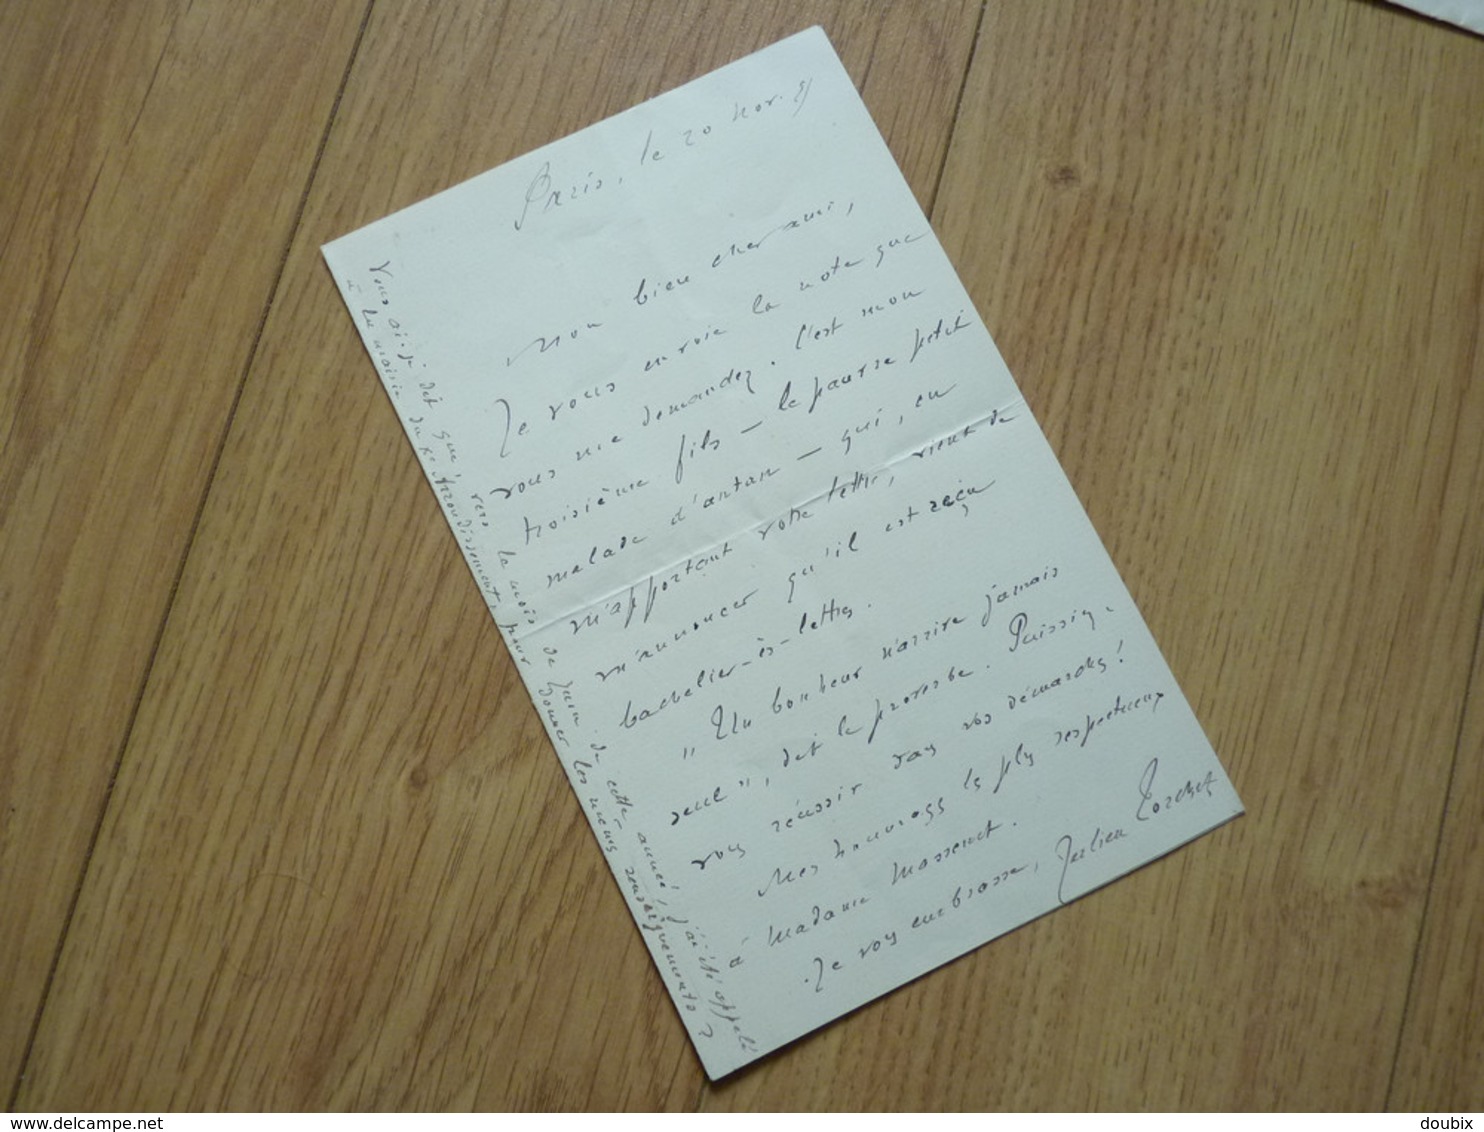 Paris, le 20 nov. 
Mon bien cher ami,
Je vous envoie la note que
vous me demandez. C'est mon
troisième fils — le pauvre petit
malade d'antan — qui, en
m'apportant votre lettre, vient de
m'annoncer qu'il est reçu
bachelier-ès-lettres.
"Un bonheur n'arrive jamais
seul", dit le proverbe. Puissiez-
vous réussir dans vos démarches!
Mes hommages les plus respectueux
à Madame Massenet.
Je vous embrasse, Julien Torchet
Vous ai-je dit que, vers le mois de juin de cette année, j'ai été appelé
à la mairie du Arrondissement, pour donner les mêmes renseignements?
delcampe.net
doubix